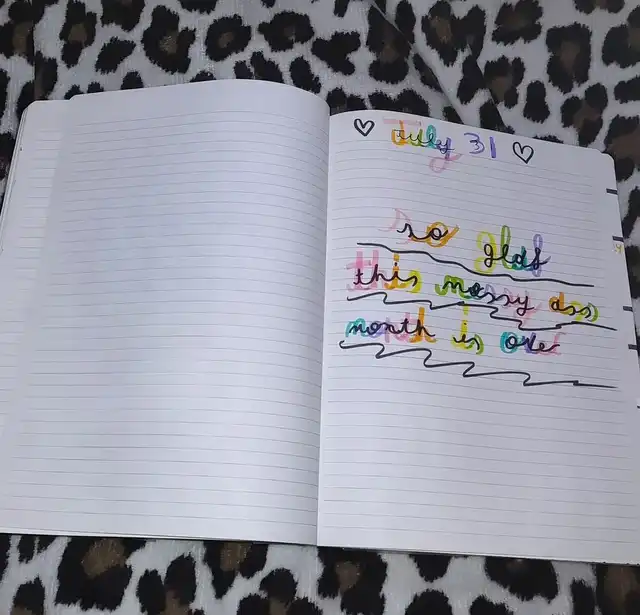 July 31
so glad
this messy ass
month is over